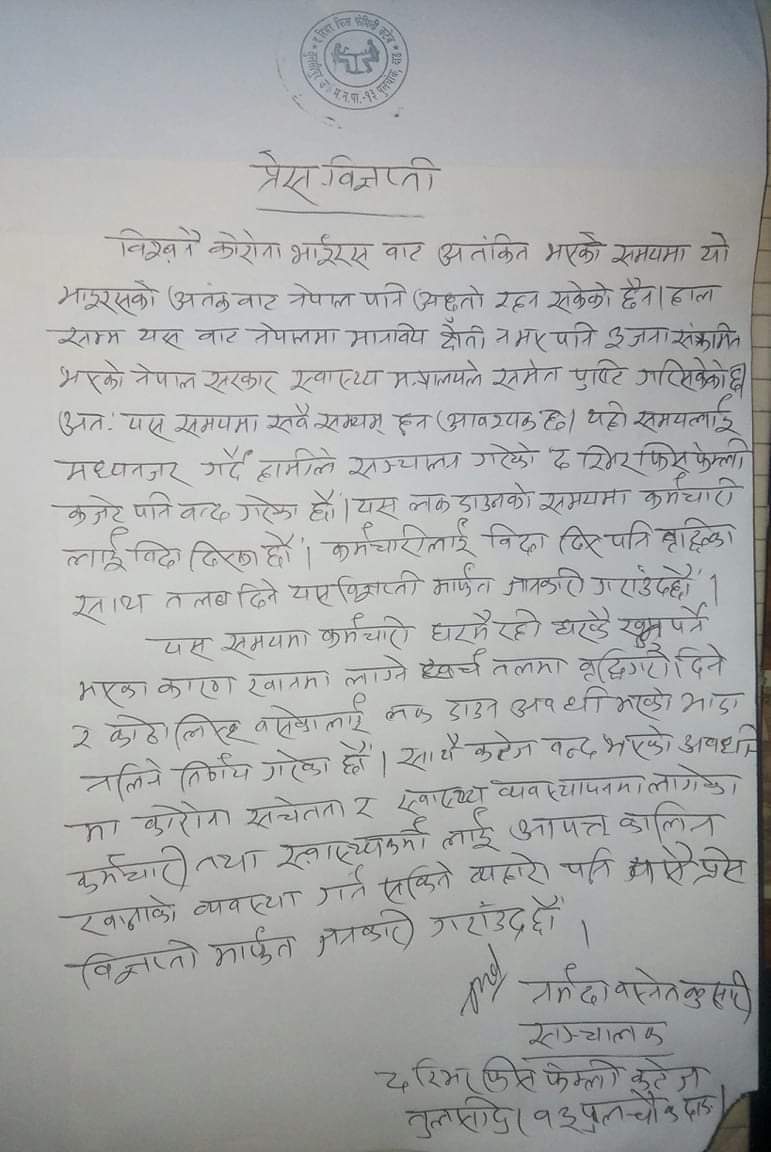 द रिभर फिस फेमिली कटेज
तुलसीपुर उ. म.न.पा.-१३ पुलचोक, दाङ
प्रेस-विज्ञप्ती
विश्व नै कोरोना भाईरस वाट अतंकित भएको समयमा यो
भाइरसको अतंक वाट नेपाल पनि अछुतो रहन सकेको छैन। हाल
सम्म यस वाट नेपालमा मानविय क्षेती नभए पनि ३ जना संक्रमित
भएको नेपाल सरकार स्वास्थ्य मन्त्रालयले समेत पुष्टि गरिसकेको छ।
अतः यस समयमा सवै सम्यम् हुन आवश्यक छ। यही समयलाई
मध्यनजर गर्दै हामीले सञ्चालन गरेको द रिभर फिस फेम्ली
कजेट पनि वन्द गरेका छौं। यस लक डाउनको समयमा कर्मचारी
लाई विदा दिएका छौं। कर्मचारीलाई विदा दिए पनि वृद्धिका
साथ तलब दिने यस विज्ञप्ती मार्फत जानकारी गराउंदछौं।
यस समयमा कर्मचारी घरमै रही घरकै खुन पर्ने
भएका कारण खानमा लाग्ने खर्च तलमा वृद्धि गरी दिने
र कोठा लिएर वसेकालाई लक डाउन अवधी भरको भाडा
नलिने निर्णय गरेका छौं। साथै कटेज वन्द भएको अवधि
मा कोरोना सचेतना र स्वास्थ्य व्यवस्थापनमा लागेका
कर्मचारी तथा स्वास्थ्यकर्मी लाई आपत कालिन
खानाको व्यवस्था गर्न सकिने व्यहोरा पनि यसै प्रेस
विज्ञप्ती मार्फत जानकारी गराउंदछौं।
नर्मदा वस्नेत कुसारी
सञ्चालक
द रिभर फिस फेम्ली कटेज
तुलसीपुर १३ पुलचौक दाङ।